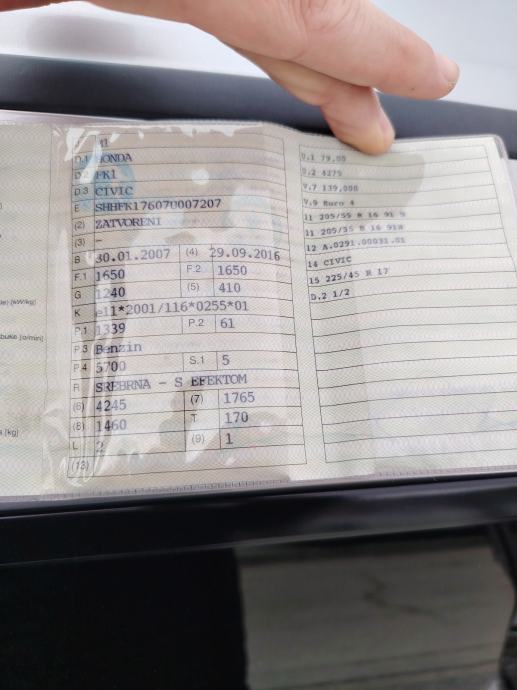 J M1
D.1 HONDA
D.2 FK1
D.3 CIVIC
E SHHFK17607U007207
(2) ZATVORENI
(3) –
B 30.01.2007 (4) 29.09.2016
F.1 1650 F.2 1650
G 1240 (5) 410
K e11*2001/116*0255*01
P.1 1339 P.2 61
P.3 Benzin
P.4 5700 S.1 5
R SREBRNA - S EFEKTOM
(6) 4245 (7) 1765
(8) 1460 T 170
L 2 (9) 1
(13)
V.1 79,00
U.2 4275
V.7 139,000
V.9 Euro 4
11 205/55 R 16 91
11 205/55 R 16 91H
12 A.0291.00031.01
14 CIVIC
15 225/45 R 17
D.2 1/2
[kW/kg]
[o/min]
[kg]